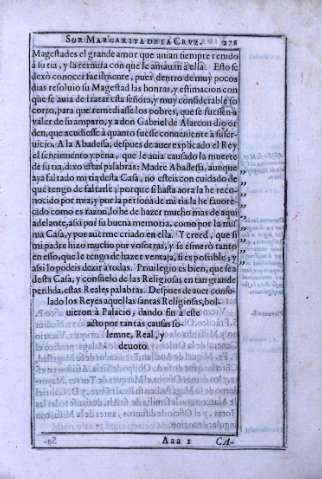 SOR MARGARITA DE LA CRVZ. 278
Magestades el grande amor que auian siempre tenido
a su tia, y la ternura con que le amauan a ella. Esto se
dexò conocer facilmente, pues dentro de muy pocos
dias resoluio su Magestad las honras, y estimacion con
que se auia de tratar esta señora, y muy considerable so
corro, para que remediasse los pobres, que se fuessen a
valer de su amparo, y a don Gabriel de Alarcon dio or
den, que acudiesse à quanto fuesse conueniente à su ser-
uicio. A la Abadessa, despues de auer explicado el Rey
el sentimiento y pena, que le auia causado la muerte
de su tia, dixo estas palabras: Madre Abadessa, aunque
aya faltado mi tia desta Casa, no esteis con cuidado de
que tengo de faltarle; porque si hasta aora la he reco-
nocido por mia, y por la persona de mi tia la he fauore-
cido como es razon, lo he de hazer mucho mas de aqui
adelante, assi por su buena memoria, como por la mis-
ma Casa, y por auerme criado en ella. Y creed, que si
mi padre hizo mucho por vosotras, y se esmerò tanto
en esso, que le tengo de hazer ventaja, si es possible, y
assi lo podeis dezir à todas. Priuilegio es bien, que sea
desta Casa, y consuelo de las Religiosas en tan grande
perdida, estas Reales palabras. Despues de auer conso-
lado los Reyes aquellas santas Religiosas, bol-
uieron à Palacio, dando fin à este
acto por tantas causas so-
lemne, Real, y
deuoto.
Aaa 2 CA-